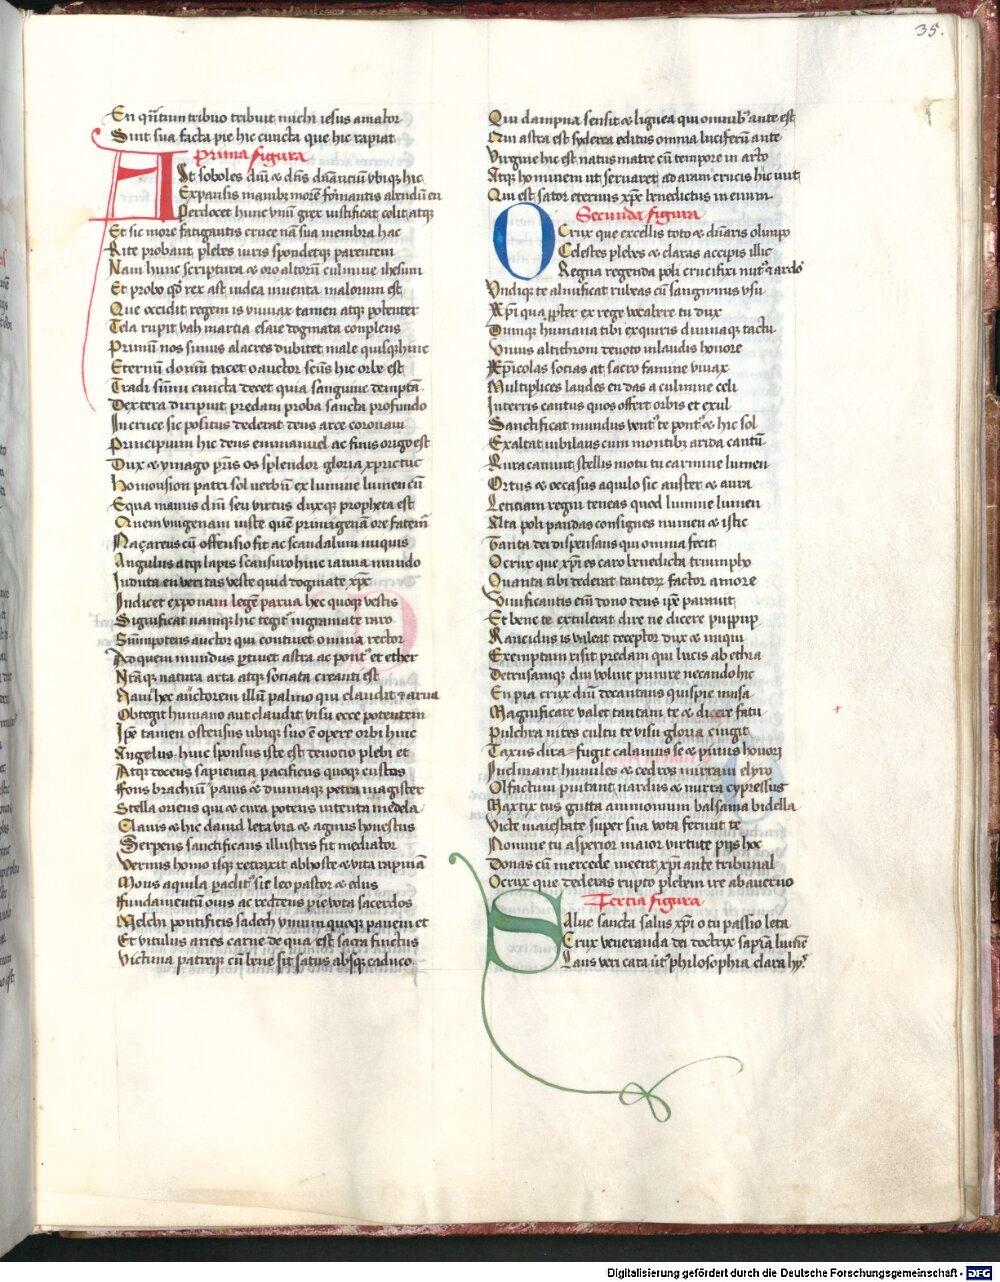 35.
En qūtum tribuo tribuit michi iesus amator
Sint sua facta pie hic cuncta que hic rapiat
Prima figura
ASt soboles dn̄i & dn̄s dn̄anciū vbiqꝫ hic
Expansis manibꝫ morē formantis
Perdocet hunc vnū grex iustificat colit atqꝫ
Et sic more fatigantis cruce nā sua membra hac
Rite probant plebes iuris spondetqꝫ parentem
Nam hunc scriptura & oro altorū culmine ihesum
Et probo qd̄ rex ast iudea inuenta malorum est
Que occidit regem is viuax tamen atqꝫ potenter
Tela rupit vah martia esaie dogmata conplens
Primū nos simus alacres dubitet male quisqꝫ hinc
Eternū donū tacet o auctor scius hic orbe est
Tradi sūmi cuncta decet quia sanguine dempta
Dextera diripuit predam proba sancta profundo
In cruce sic positus dederat deus arce coronam
Principium hic deus emmanuel ac finis origo est
Dux & ymago pr̄is os splendor gloria xp̄ictuc
Homousion patri sol verbū ex lumine lumen cū
Equa manus dn̄i seu virtus duxqꝫ propheta est
Quem vnigenam iuste quē primigenā ore fatem̄
Naçareus cū offensio fit ac scandalum iniquis
Angulus atqꝫ lapis scansuro hinc ianua mundo
Induta en veritas veste quid dogmate xp̄c
Indicet exponam legē parua hec quoqꝫ vestis
Significat namqꝫ hic tegit nigramate raro
Sūmipotens auctor qui continet omnia rector
Ad quem mundus ptinet astra ac pontꝰ et ether
Nr̄aqꝫ natura arta atqꝫ sociata creanti est
Nam hec auctorem illū palmo qui claudit & arua
Obtegit humano aut claudit visu ecce potentem
Ip̄e tamen ostensus vbiqꝫ suo ē opere orbi hinc
Angelus hinc sponsus iste est deuotio plebi et
Atqꝫ docens sapientia pacificus quoqꝫ custos
Fons brachiū panis & dominaqꝫ petra magister
Stella oriens qui & cura potens intenta medela
Clauis & hic dauid leta via & agnus honestus
Serpens sanctificans illustris fit mediator
Vermis homo isqꝫ retraxit ab hoste & vita rapinā
Mons aquila paclitꝰ sie leo pastor & edus
Fundamentū ouis ac reddens pie vota sacerdos
Melchi pontificis sadech vinum quoqꝫ panem et
Et vitulus aries carne de qua est sacra functus
Victima patreqꝫ cū bene sit satus absqꝫ caduco
Qui dampna sensit & lignea qui omnibꝰ ante est
Qui astra est sydera editus omnia luciferū ante
Virgine hic est natus matre cū tempore in arto
Atqꝫ hominem ut seruaret ad aram crucis hic iuit
Qui est sator eternus xp̄c benedictus in euum
Secunda figura
O Crux que excellis toto & dn̄aris olimpo
Celestes plebes & claras accipis illic
Regna regenda poli crucifixi nutꝰ & ardo
Vndiqꝫ te almificat rubeas cū sanguinis vsu
Xp̄i qua ppter ex rege vocabere tu dux
Dumqꝫ humana tibi exquiris diuinaqꝫ tactu
Vnius altithroni deuoto inlaudis honore
Xp̄icolas socias at sacro famine viuax
Multiplices laudes en das a culmine celi
In terris cantus quos offert orbis et exul
Sanctificat mundus ventꝰ te pontꝰ & hic sol
Exaltat iubilans cum montibꝫ arida cantū
Aura canunt stellis motu tu carmine lumen
Ortus & occasus aquilo sic auster & aura
Letitiam regni teneas quod lumine lumen
Alta poli pandas consignes numen & istic
Tanta dei dispensans qui omnia fecit
O crux que xp̄i es caro benedicta triumpho
Quanta tibi dederat tantorꝫ factor amore
Viuificantis cū dono deus ip̄e parauit
Et bene te extulerat dire ne dicere puppup
Rancidus is valeat deceptor dux & iniqui
Exemptam risit predam qui lucis ab ethra
Detrusamqꝫ diu voluit punire necando hic
En pia crux dn̄i decantans quispie musa
Magnificate valet tantam te & dicere fatu
Pulchra nites cultu te visu gloria cingit
Taxus dira fugit calamus se & pinus honorꝫ
Inclinant humiles & cedros mirram elyro
Olfactum putant nardus & mirta cypressus
Martir tus gutta ammonium balsama bidella
Victe maiestate super sua vota ferunt te
Nomine tu asperior maior virtute pijs hoc
Donas cū mercede nicent xp̄i ante tribunal
O crux que dederas rupto plebem ire ab auerno
Tertia figura
SAlue sancta salus xp̄i o tu passio leta
Crux veneranda dei doctrix sapīa lumē
Laus veri cara ūtꝰ philosophia clara hyꝰ
Digitalisierung gefördert durch die Deutsche Forschungsgemeinschaft - DFG